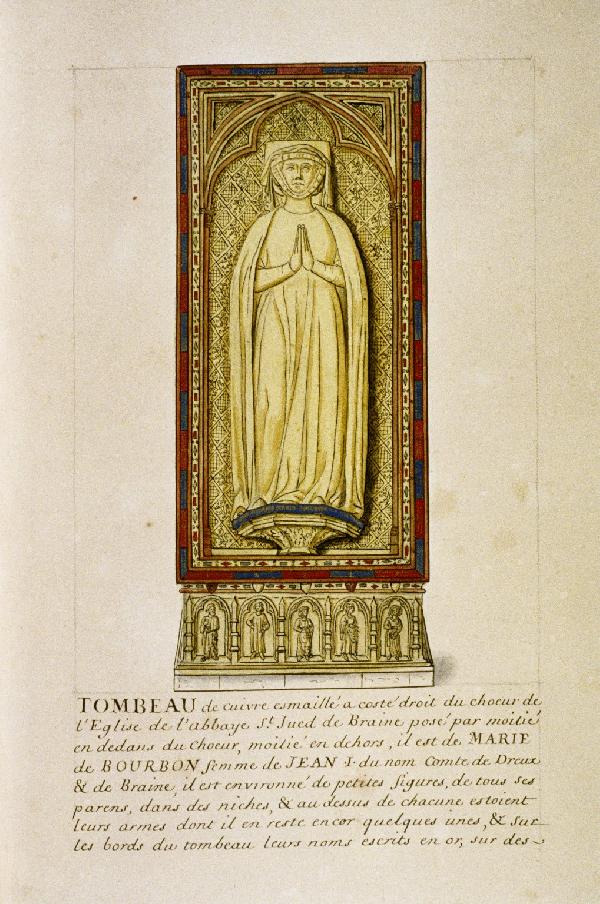 TOMBEAU de cuivre esmaillé a costé droit du choeur de
l'Eglise de l'abbaye St. Jued de Braine posé par moitié
en dedans du Choeur, moitié en dehors, il est de MARIE
de BOURBON femme de JEAN I. du nom Comte de Dreux
& de Braine, il est environné de petites figures, de tous ses
parens, dans des niches, & au dessus de chacune estoient
leurs armes dont il en reste encor quelques unes, & sur
les bords du tombeau leurs noms escrits en or, sur des